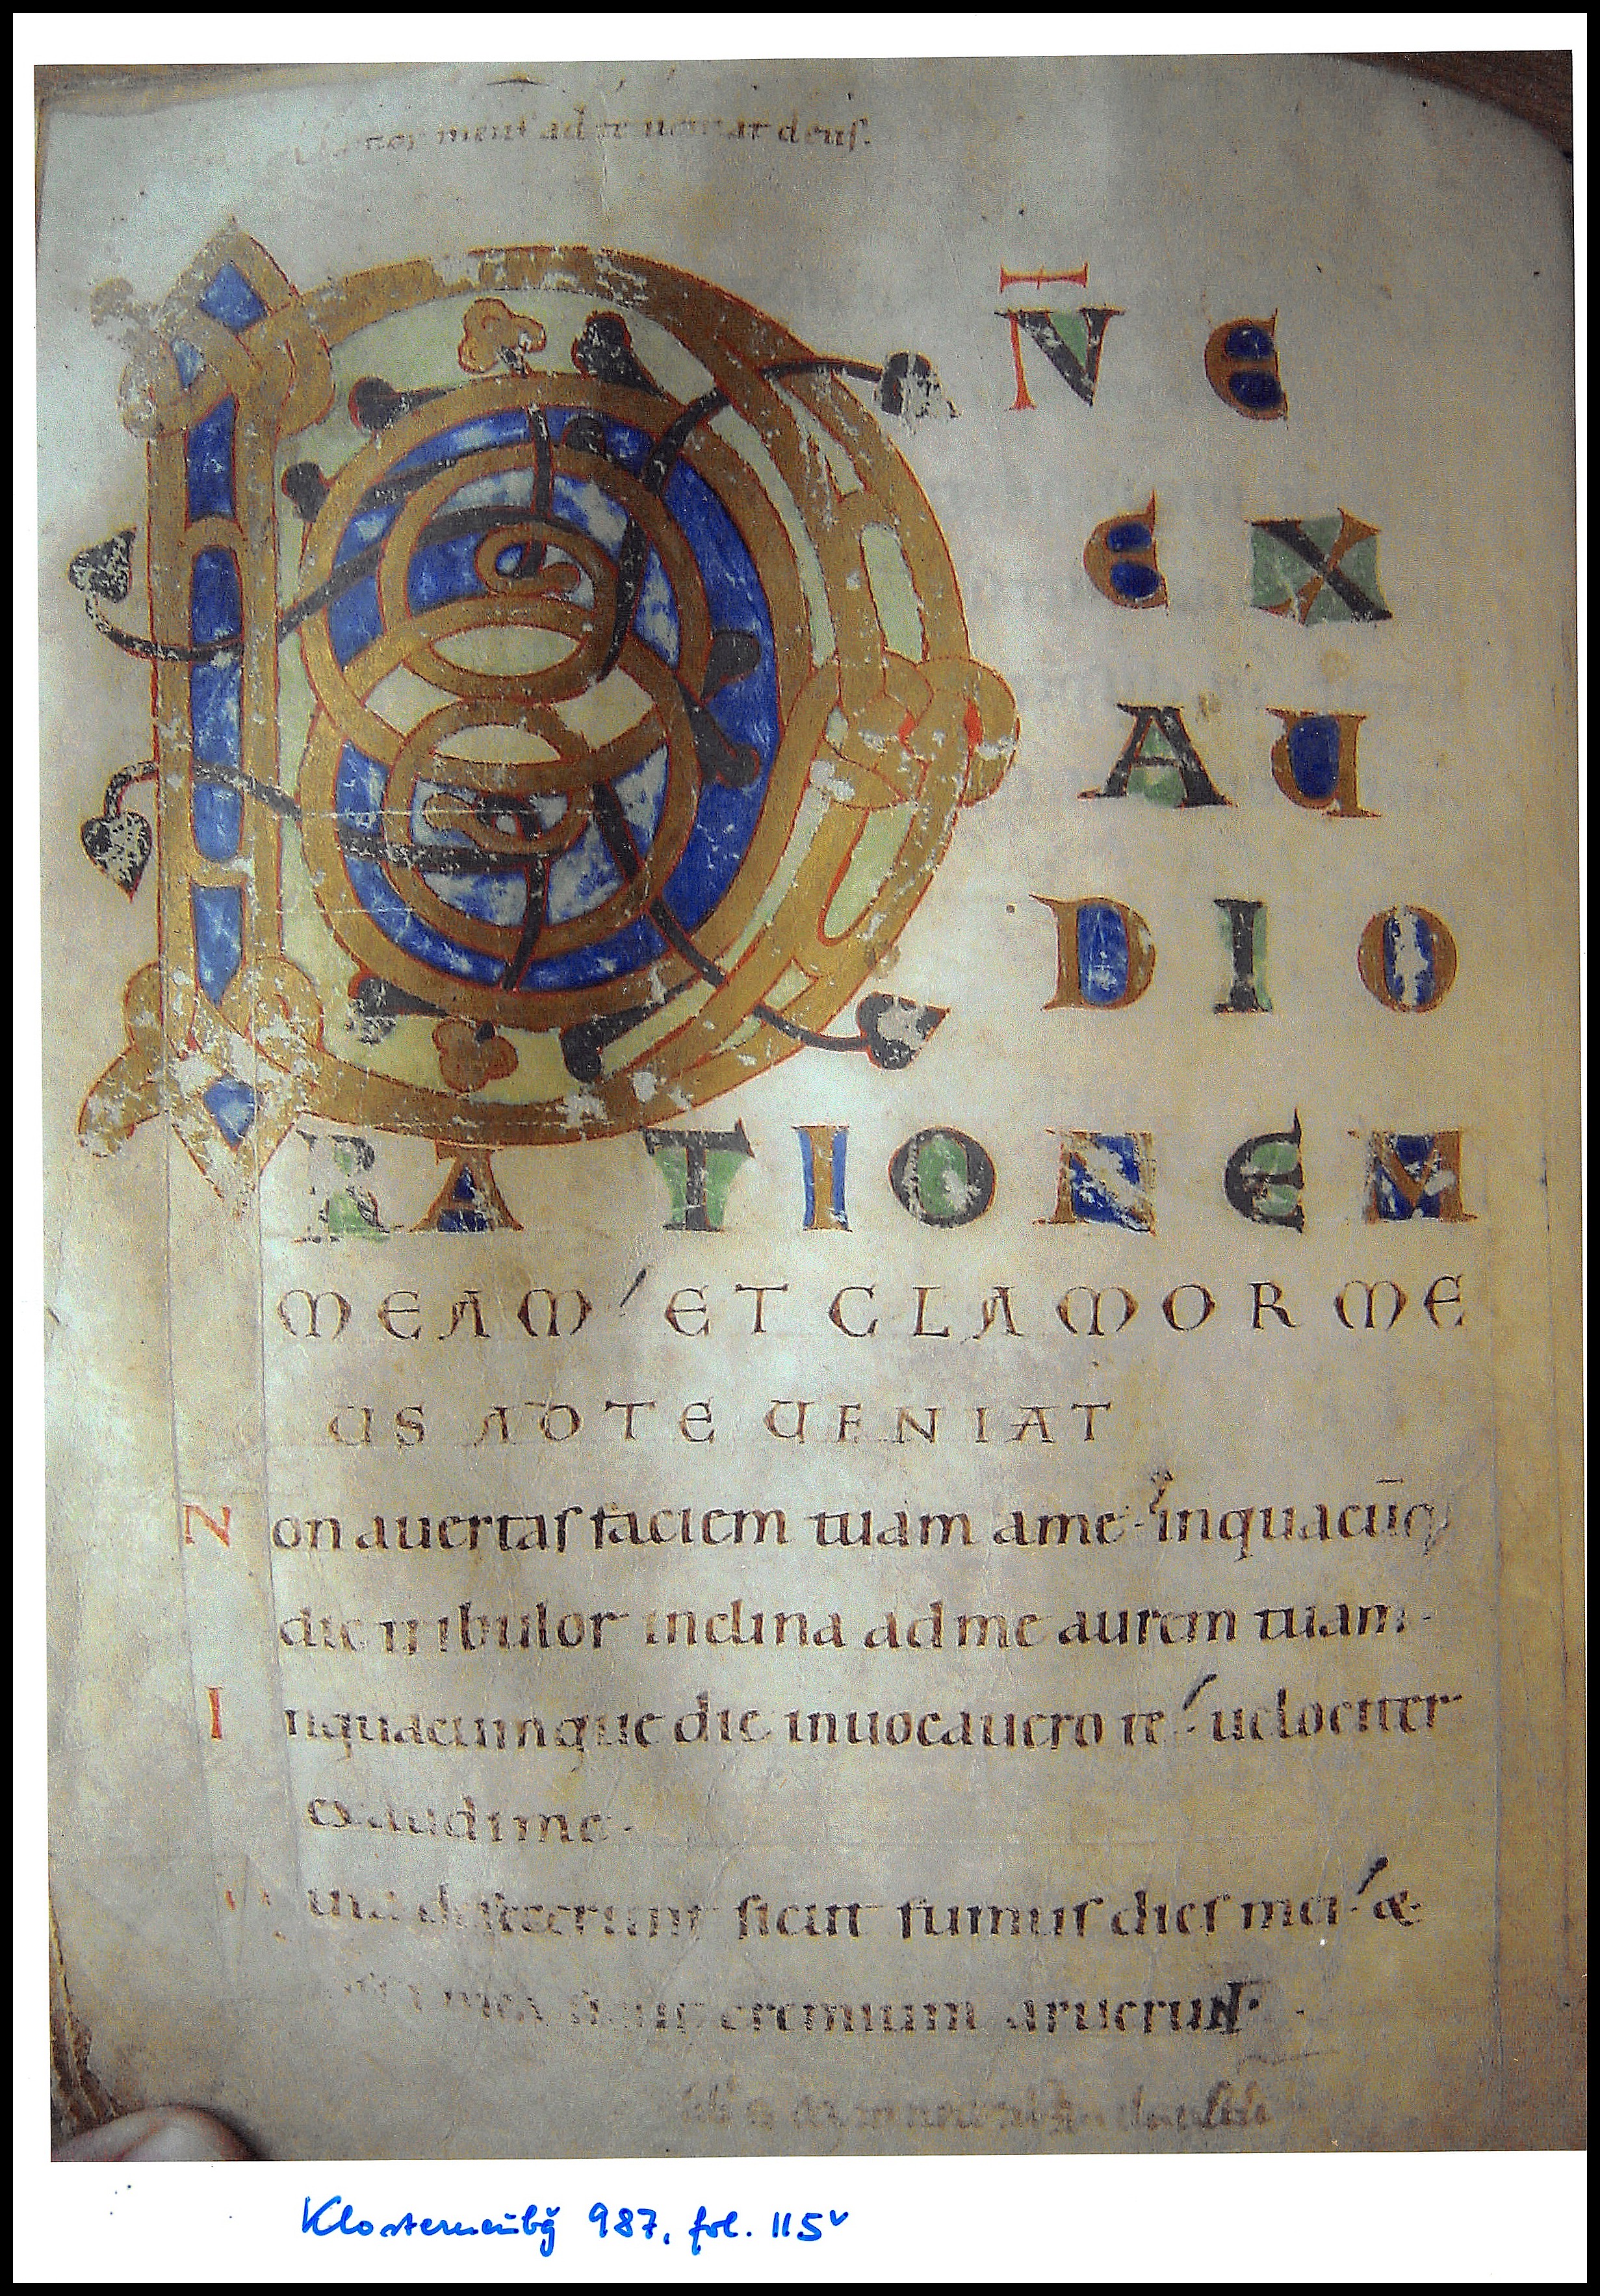 clamor meus ad te ueniat deus.
D N̄ E
EX
AU
DIO
RATIONEM
MEAM ET CLAMOR ME
US AD TE UENIAT
Non auertas faciem tuam a me inquacūq;
die tribulor inclina ad me aurem tuam.
Inquacumque die inuocauero te uelociter
exaudi me.
Quia defecerunt sicut fumus dies mei æ
mea sicut cremium aruerunt.
Klosterneubg 987, fol. 115v